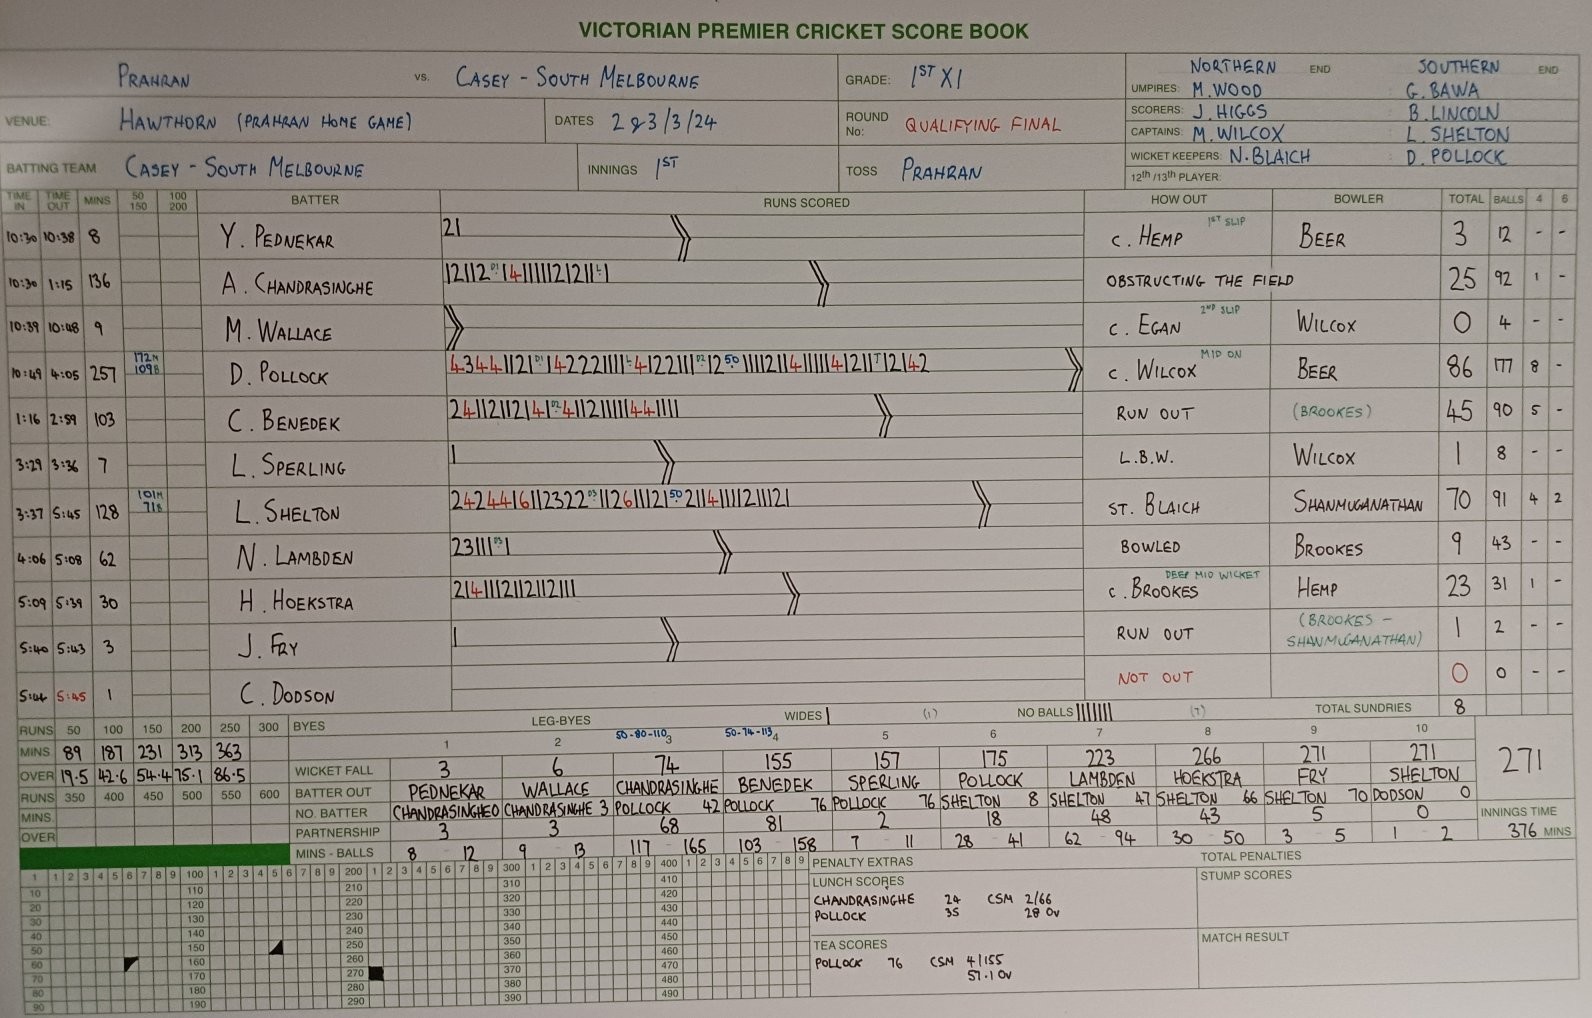 VICTORIAN PREMIER CRICKET SCORE BOOK
PRAHRAN VS. CASEY - SOUTH MELBOURNE GRADE: 1ST XI NORTHERN END SOUTHERN END
UMPIRES: M. WOOD G. BAWA
VENUE: HAWTHORN (PRAHRAN HOME GAME) DATES 2 & 3/3/24 ROUND No: QUALIFYING FINAL SCORERS: J. HIGGS B. LINCOLN
CAPTAINS: M. WILCOX L. SHELTON
BATTING TEAM CASEY - SOUTH MELBOURNE INNINGS 1ST TOSS PRAHRAN WICKET KEEPERS: N. BLAICH D. POLLOCK
12th /13th PLAYER:
TIME IN TIME OUT MINS 50 150 100 200 BATTER RUNS SCORED HOW OUT BOWLER TOTAL BALLS 4 6
10:30 10:38 8 Y. PEDNEKAR 21 C. HEMP 1ST SLIP BEER 3 12 - -
10:30 1:15 136 A. CHANDRASINGHE OBSTRUCTING THE FIELD 25 92 1 -
10:39 10:48 9 M. WALLACE C. EGAN 2ND SLIP WILCOX 0 4 - -
10:49 4:05 257 172M 109B D. POLLOCK C. WILCOX MID ON BEER 86 177 8 -
1:16 2:59 103 C. BENEDEK RUN OUT (BROOKES) 45 90 5 -
3:29 3:36 7 L. SPERLING 1 L.B.W. WILCOX 1 8 - -
3:37 5:45 128 101M 71B L. SHELTON ST. BLAICH SHANMUGANATHAN 70 91 4 2
4:06 5:08 62 N. LAMBDEN BOWLED BROOKES 9 43 - -
5:09 5:39 30 H. HOEKSTRA C. BROOKES DEEP MID WICKET HEMP 23 31 1 -
5:40 5:43 3 J. FRY 1 RUN OUT (BROOKES - SHANMUGANATHAN) 1 2 - -
5:44 5:45 1 C. DODSON NOT OUT 0 0 - -
RUNS 50 100 150 200 250 300 BYES LEG-BYES WIDES (1) NO BALLS (7) TOTAL SUNDRIES 8
50-80-110 50-74-113
1 2 3 4 5 6 7 8 9 10
MINS 89 187 231 313 363
OVER 19.5 42.6 54.4 75.1 86.5 WICKET FALL 3 6 74 155 157 175 223 266 271 271 271
RUNS 350 400 450 500 550 600 BATTER OUT PEDNEKAR WALLACE CHANDRASINGHE BENEDEK SPERLING POLLOCK LAMBDEN HOEKSTRA FRY SHELTON
MINS. NO. BATTER CHANDRASINGHE 0 CHANDRASINGHE 3 POLLOCK 42 POLLOCK 76 POLLOCK 76 SHELTON 8 SHELTON 47 SHELTON 66 SHELTON 70 DODSON 0
OVER PARTNERSHIP 3 3 68 81 2 18 48 43 5 0 INNINGS TIME
MINS - BALLS 8 - 12 9 - 13 117 - 165 103 - 158 7 - 11 28 - 41 62 - 94 30 - 50 3 - 5 1 - 2 376 MINS
1 1 2 3 4 5 6 7 8 9 100 1 2 3 4 5 6 7 8 9 200 1 2 3 4 5 6 7 8 9 300 1 2 3 4 5 6 7 8 9 400 1 2 3 4 5 6 7 8 9
10 110 210 310 410
20 120 220 320 420
30 130 230 330 430
40 140 240 340 440
50 150 250 350 450
60 160 260 360 460
70 170 270 370 470
80 180 280 380 480
90 190 290 390 490
PENALTY EXTRAS TOTAL PENALTIES
LUNCH SCORES STUMP SCORES
CHANDRASINGHE 24 CSM 2/66
POLLOCK 35 28 OV
TEA SCORES MATCH RESULT
POLLOCK 76 CSM 4/155
57.1 OV